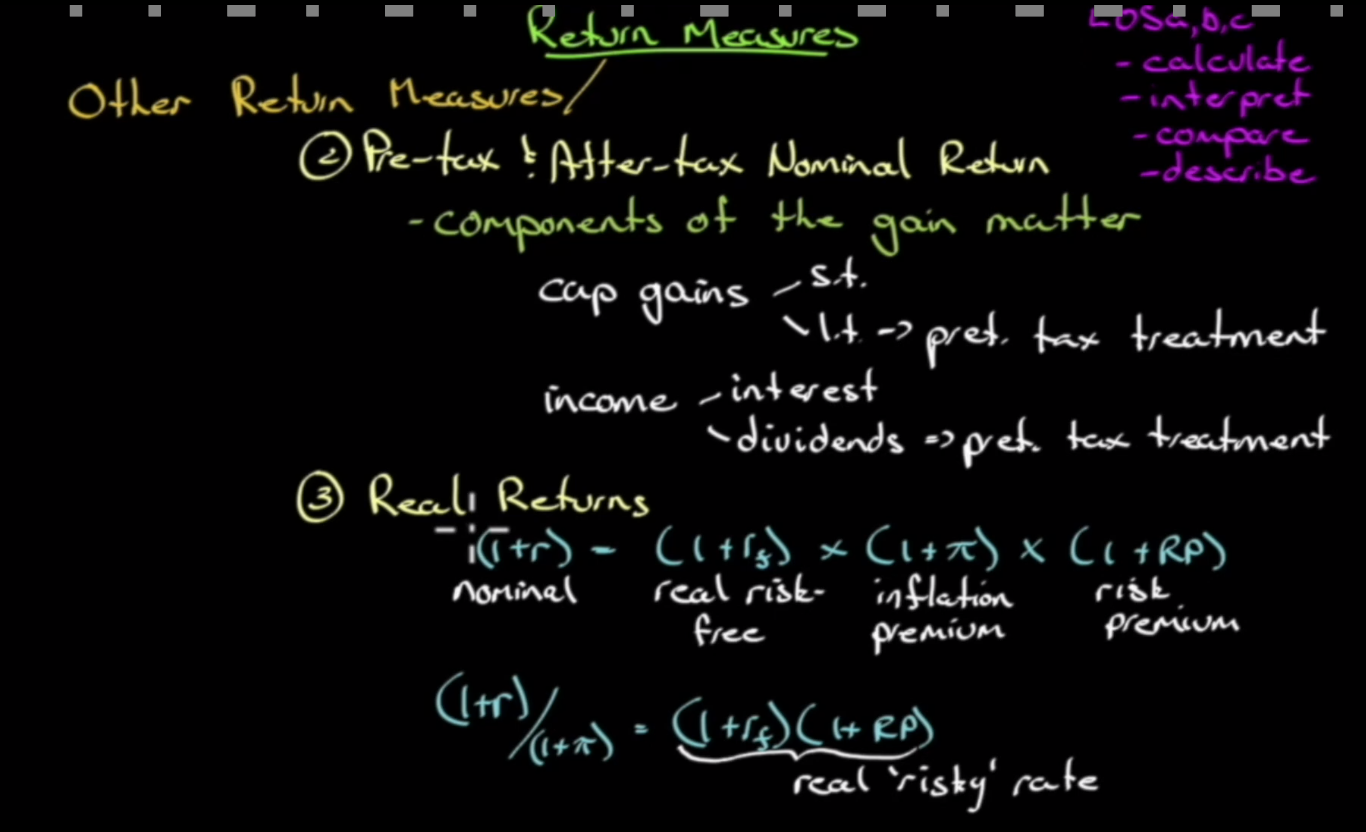 Return Measures
LOS a,b,c
- calculate
- interpret
- compare
- describe
Other Return Measures/
② Pre-tax & After-tax Nominal Return
- components of the gain matter
cap gains - s.t.
l.t. -> pref. tax treatment
income - interest
dividends => pref. tax treatment
③ Real Returns
(1+r) = (1+rf) × (1+π) × (1+RP)
nominal real risk- inflation risk
free premium premium
(1+r)/(1+π) = (1+rf)(1+RP)
real 'risky' rate